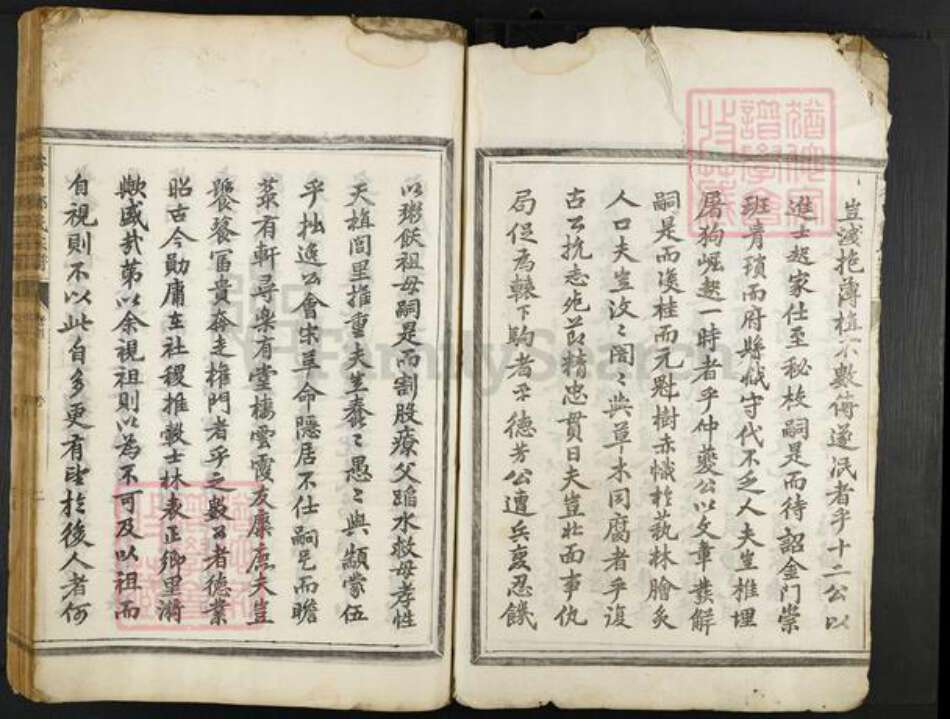 豈淺袍薄植不數傳遂泯者乎十二公以
進士起家仕至秘校嗣是而待詔金門崇
班青瑣而府縣貳守代不乏人夫豈椎埋
屠狗崛起一時者乎仲夔公以文章發解
嗣是而浚桂而元魁樹赤幟於萟林膾炙
人口夫豈汶〻闇〻與草木同腐者乎復
古公抗志兇莭精忠貫日夫豈北面事仇
局促為轅下駒者乎德芳公遭兵亥忍饑
以粥飫祖母嗣是而割股療父蹈水救母孝性
天植閭里推重夫豈蠢〻愚〻與顓蒙伍
乎拙逸公會宋革命隱居不仕嗣是而瞻
菉有軒尋樂有堂棲雲霞友麋鹿夫豈
饕餮冨貴奔走權門者乎之數公者德業
昭古今勛庸在社稷推轂士林表正鄉里濟
歟盛㢤第以余視祖則以為不可及以祖而
自視則不以此自多更有望扵後人者何
FamilySearch